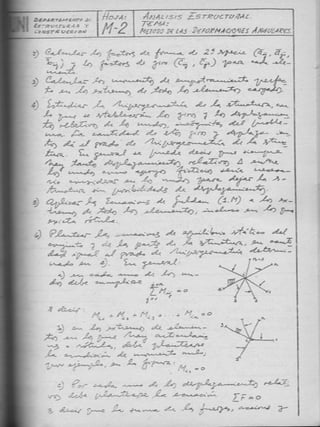 DEPARTAMENTO DE
ESTRUCTURAS Y
CONSTRUCCION
HOJA:
M-2
ANALISIS ESTRUCTURAL
TEMA:
METODO DE LAS DEFORMACIONES ANGULARES
2) Calcular los factores de forma de 2ª especie
y los factores de giro para cada ele-
mento.
3) Calcular los momentos de empotramiento perfec-
to en los extremos de todos los elementos cargados
4) Estudiar la hipergeometría de la estructura, con
lo que se establecerán los giros y los desplazamien-
tos relativos de los nudos, incógnitas del proble-
ma. La cantidad de
tos da el grado de hipergeometría de la estruc-
tura. En general se puede decir que
hay tantos desplazamientos relativos Δ entre
los nudos como apoyos ficticios sería necesa-
rio considerar en los nudos para dejar la es-
tructura sin posibilidades de desplazamiento.
5) Aplicar las Ecuaciones de Guldan (S.M) a los ex-
tremos de todos los elementos, incluso en los que
exista rótula.
6) Plantear las ecuaciones de equilibrio estático del
conjunto y de las partes de la estructura, en canti-
dad igual al grado de hipergeometría determi-
nado en 4). En general:
a) en cada uno de los nu-
dos debe cumplirse
es decir:
b) en los extremos de elemen-
tos en los que hay articulacio-
nes o rótulas, debe plantearse
la condición de momento nulo,
por ejemplo, en la figura:
c) Por cada uno de los desplazamientos relati-
vos debe plantearse la ecuación ΣF=0
es decir que la suma de las fuerzas, acciones y